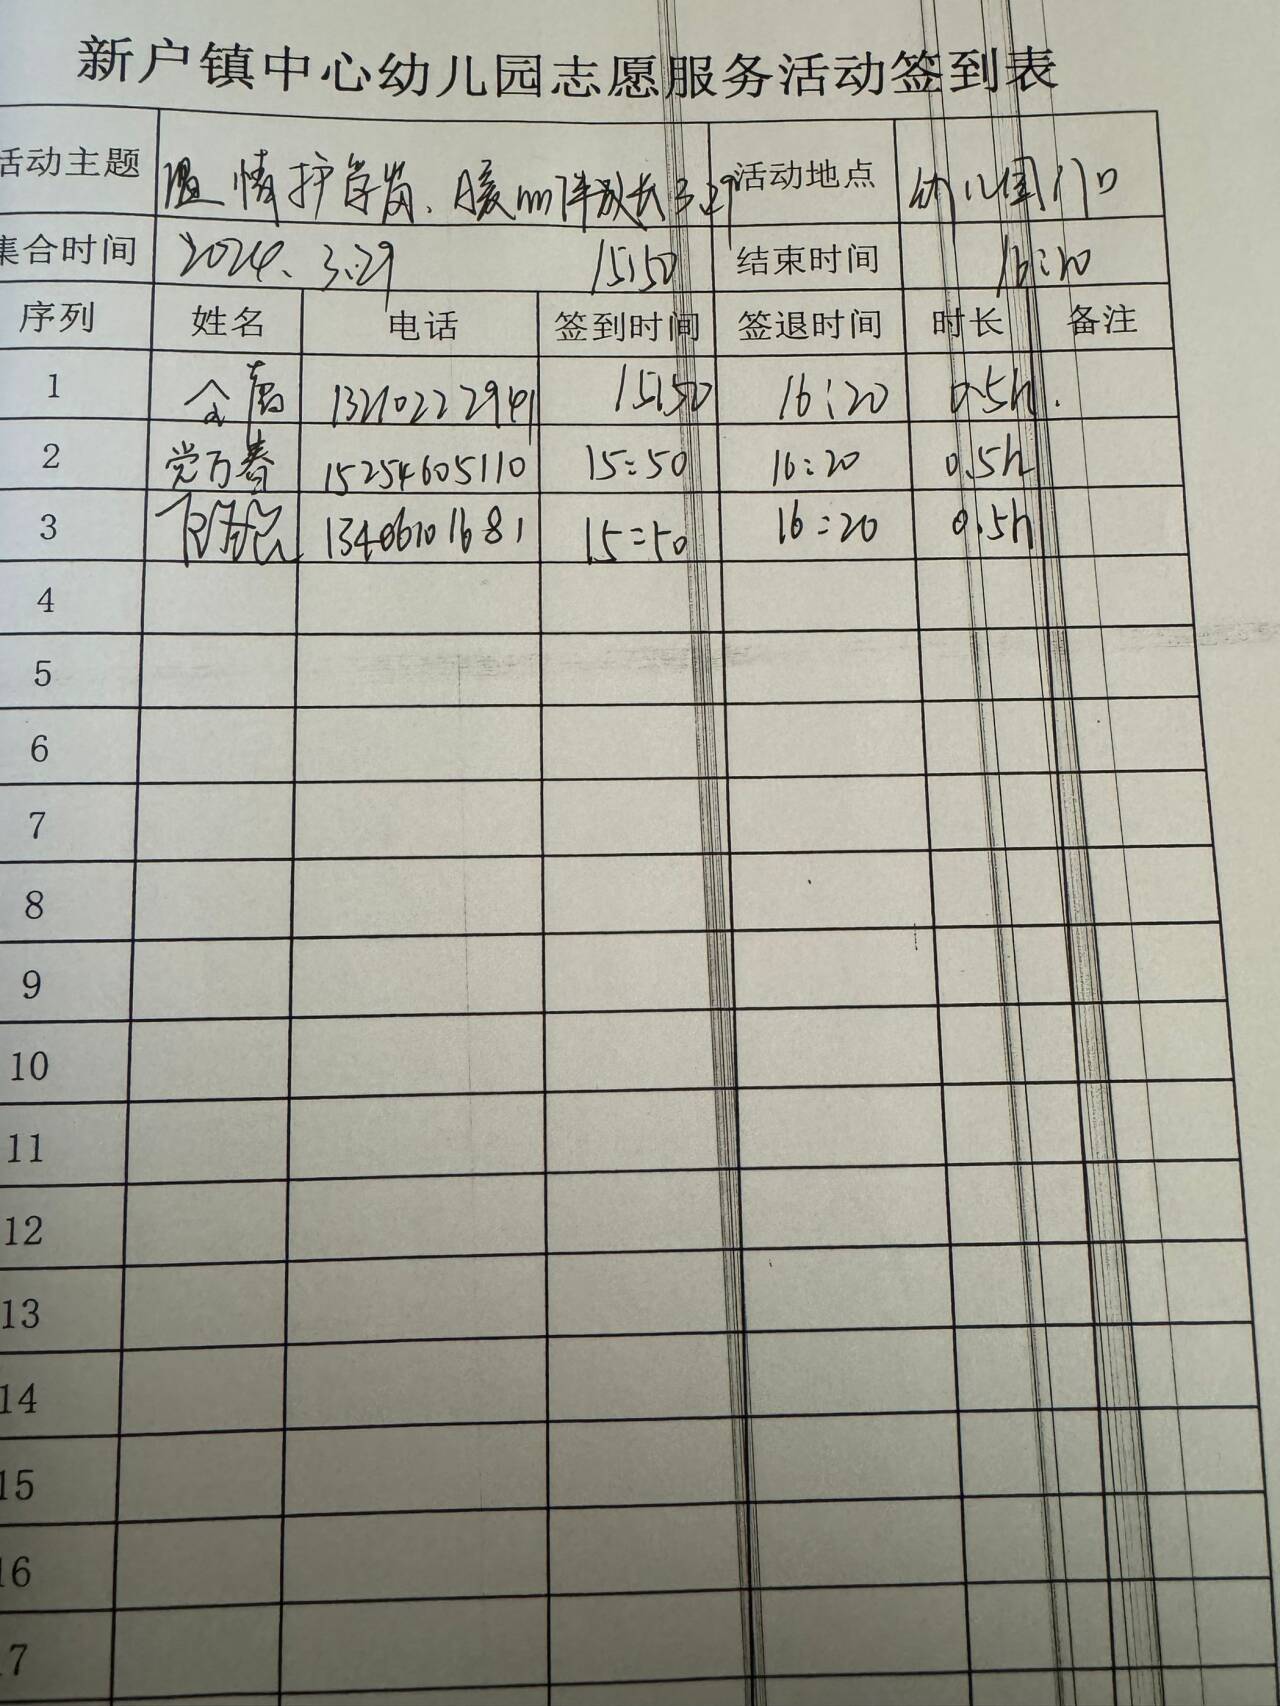 新户镇中心幼儿园志愿服务活动签到表
活动主题 温情护学岗、暖心伴成长3.29 活动地点 幼儿园门口
集合时间 2024.3.29 15:50 结束时间 16:20
序列 姓名 电话 签到时间 签退时间 时长 备注
1 13210222941 15:50 16:20 0.5h.
2 党万春 15254605110 15:50 16:20 0.5h
3 13406101681 15:50 16:20 0.5h
4
5
6
7
8
9
10
11
12
13
14
15
16
17